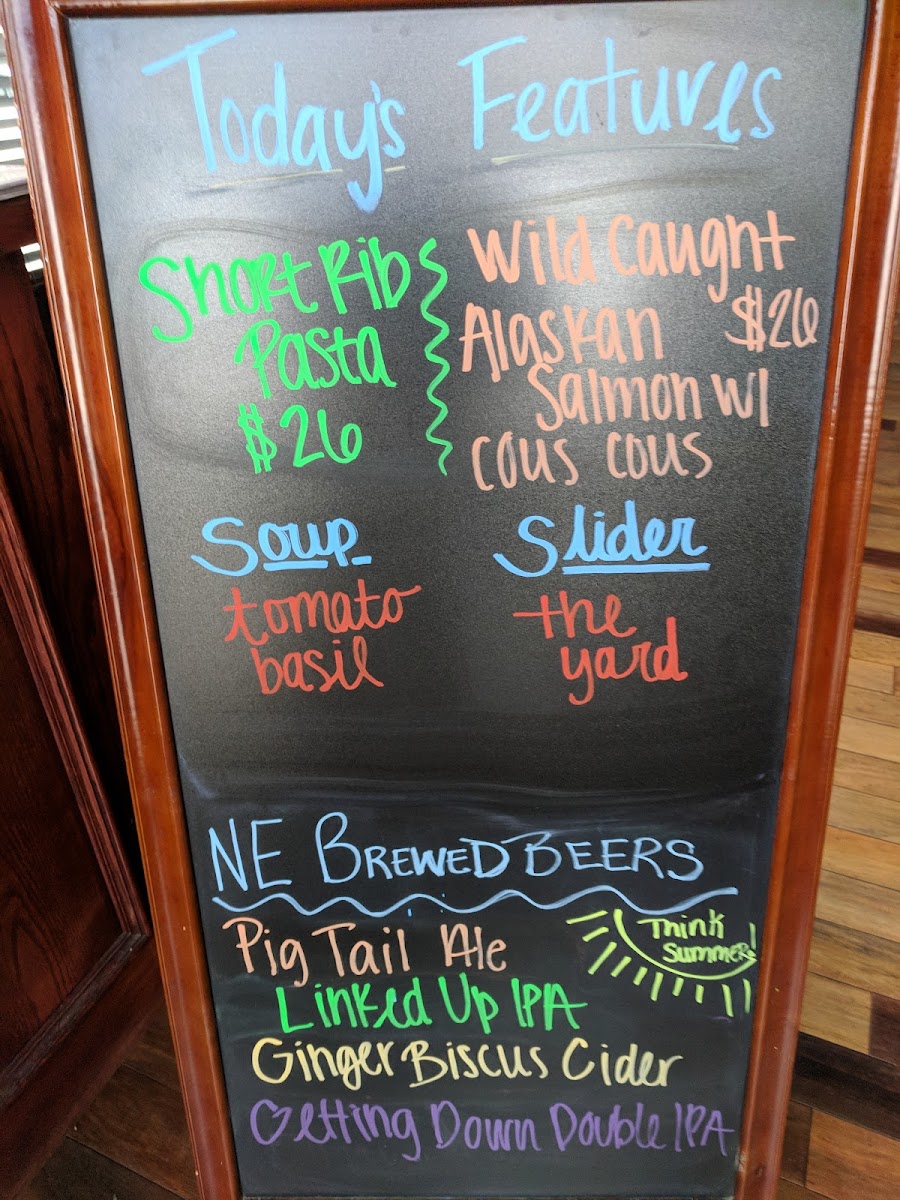 Today's Features
Short Rib
Pasta
$26
Wild Caught
Alaskan $26
Salmon w/
cous cous
Soup
tomato
basil
Slider
the
yard
NE BREWED BEERS
Pig Tail Ale
Think
Summer!
Linked Up IPA
Ginger Biscus Cider
Getting Down Double IPA